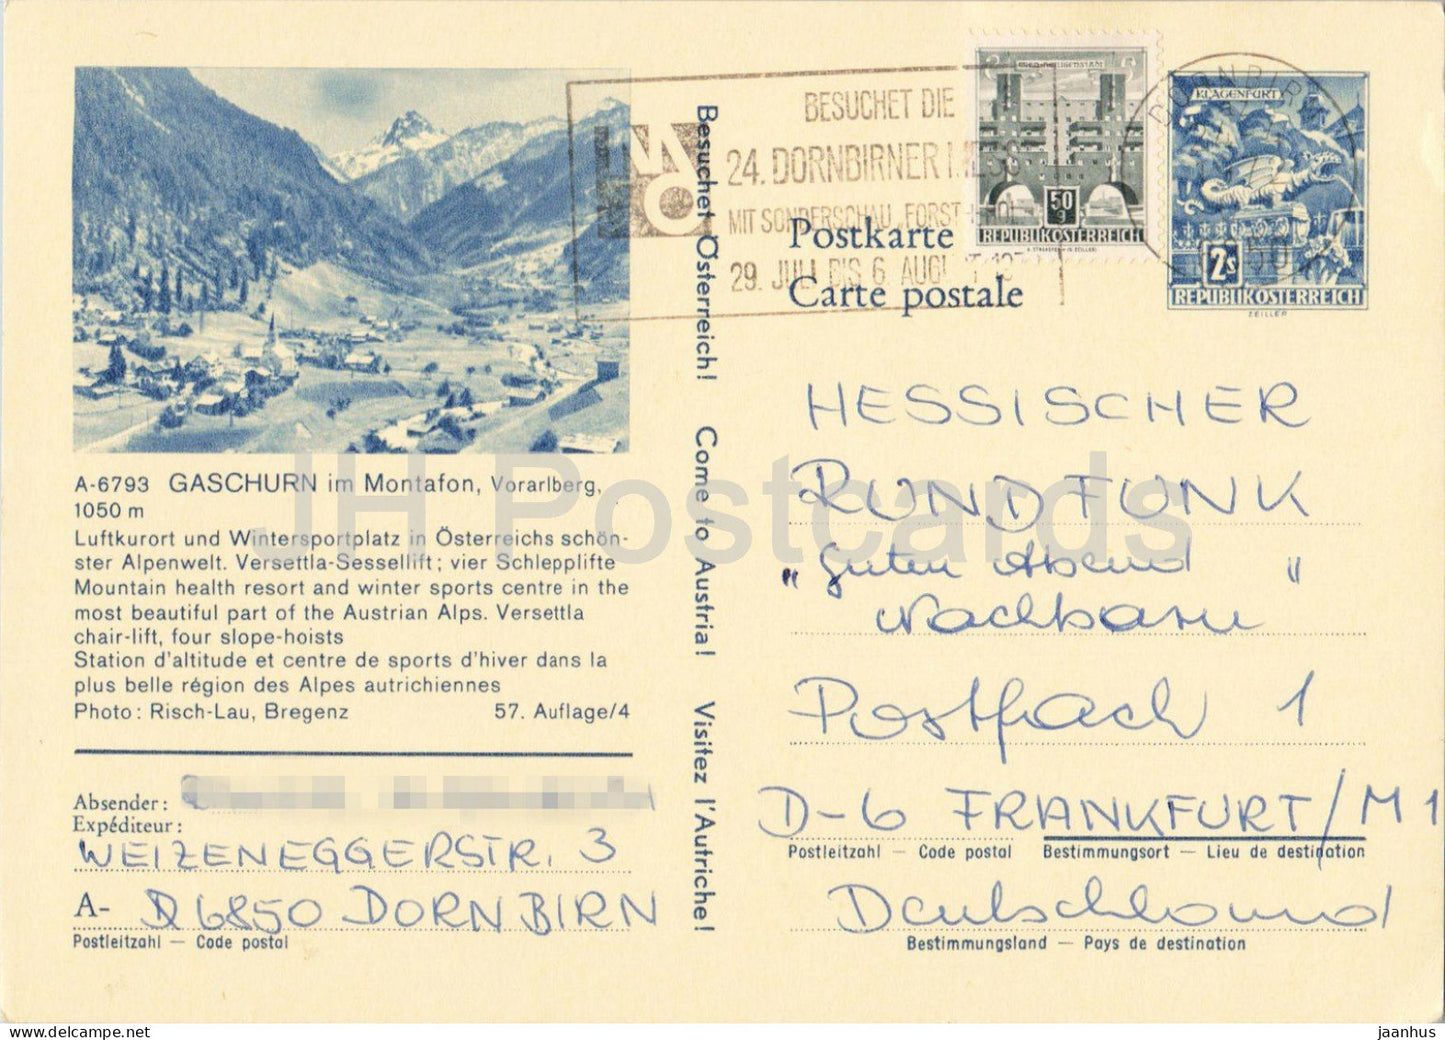 BESUCHET DIE
24. DORNBIRNER MESSE
MIT SONDERSCHAU FORST
29. JULI BIS 6. AUGUST
WIEN-HEILIGENSTADT
50
g
REPUBLIK ÖSTERREICH
DORNBIRN
KLAGENFURT
2s
REPUBLIK ÖSTERREICH
ZEILLER
Postkarte
Carte postale
Besuchet Österreich! Come to Austria! Visitez l'Autriche!
A-6793 GASCHURN im Montafon, Vorarlberg,
1050 m
Luftkurort und Wintersportplatz in Österreichs schön-
ster Alpenwelt. Versettla-Sessellift; vier Schlepplifte
Mountain health resort and winter sports centre in the
most beautiful part of the Austrian Alps. Versettla
chair-lift, four slope-hoists
Station d'altitude et centre de sports d'hiver dans la
plus belle région des Alpes autrichiennes
Photo: Risch-Lau, Bregenz 57. Auflage/4
Absender:
Expéditeur:
WEIZENEGGERSTR. 3
A- 6850 DORNBIRN
Postleitzahl — Code postal
HESSISCHER
RUNDFUNK
„Guten Abend "
Nachbarn
Postfach 1
D-6 FRANKFURT/M 1
Postleitzahl — Code postal Bestimmungsort — Lieu de destination
Deutschland
Bestimmungsland — Pays de destination
JH Postcards
jaanhus — delcampe.net